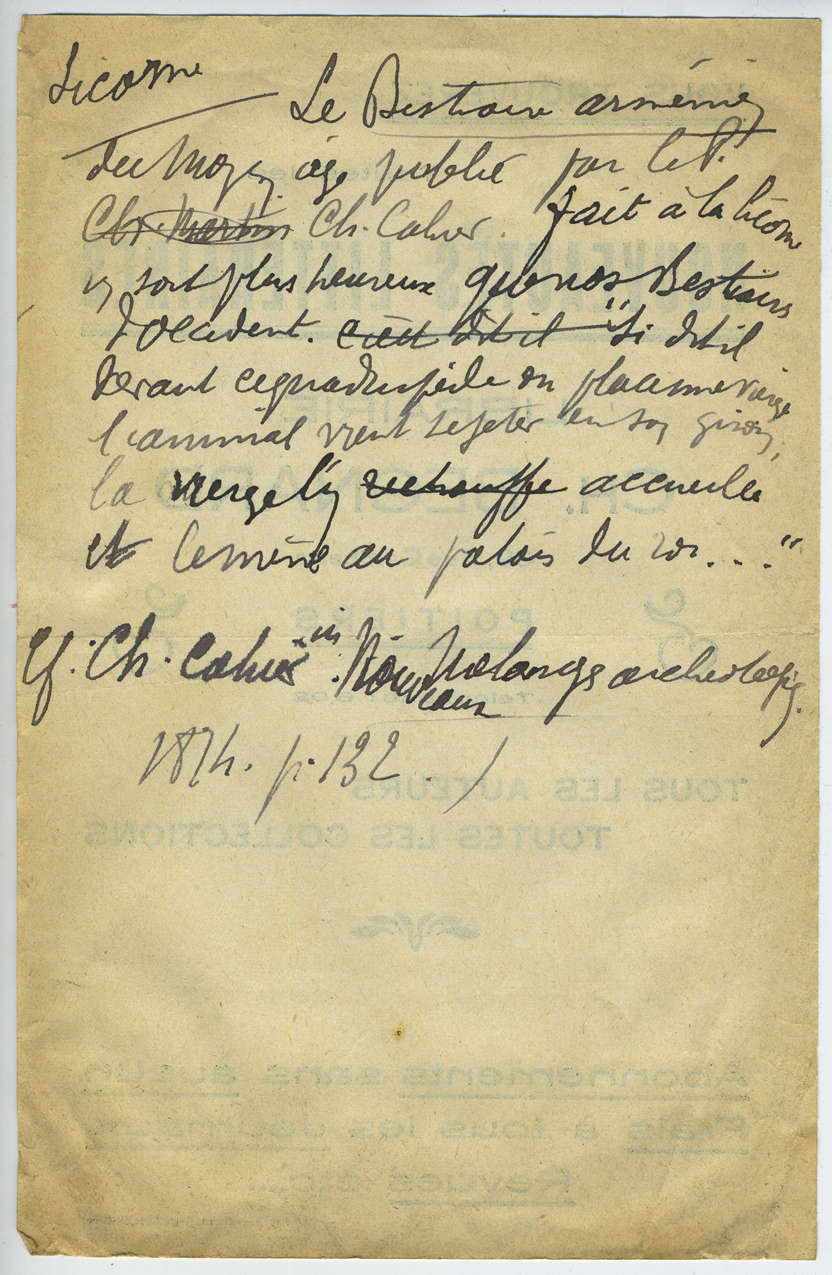 Licorne
Le Bestiaire arménien
du Moyen âge publié par le P.
Chr. Martin Ch. Cahier. fait à la licorne
un sort plus heureux que nos Bestiaires
d'Occident. c'est dit il "Si dit il
devant ce quadrupède on place une vierge
l'animal vient se jeter en son giron,
la vierge l'y rechauffe accueille
et l'emmène au palais du roi..."
Cf. Ch. Cahier in Nouveaux Mélanges archéologiq.
1874. p. 132.
NOUVEAUTÉS LITTÉRAIRES
LIBRAIRIE
POITIERS
TOUS LES AUTEURS
TOUTES LES COLLECTIONS
Abonnements sans aucun
Frais à tous les Journaux
Revues etc...